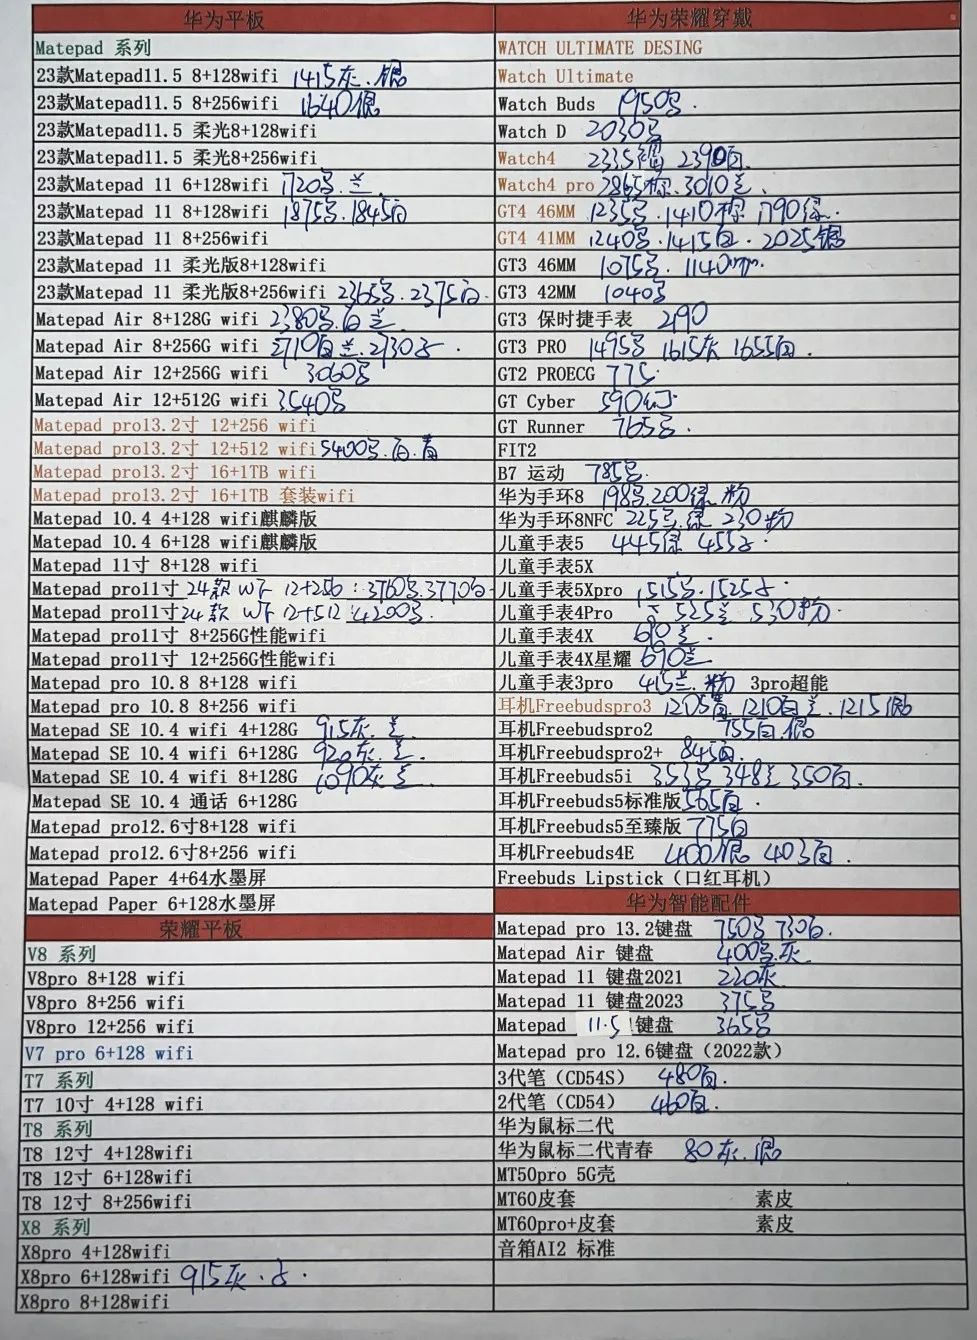 华为平板
Matepad 系列
23款Matepad11.5 8+128wifi 1415灰.银
23款Matepad11.5 8+256wifi 1640银
23款Matepad11.5 柔光8+128wifi
23款Matepad11.5 柔光8+256wifi
23款Matepad 11 6+128wifi 1720号.兰
23款Matepad 11 8+128wifi 1875号.1845白
23款Matepad 11 8+256wifi
23款Matepad 11 柔光版8+128wifi
23款Matepad 11 柔光版8+256wifi 2365号.2375白.
Matepad Air 8+128G wifi 2380号.白兰.
Matepad Air 8+256G wifi 2710白兰.2730
Matepad Air 12+256G wifi 3060号
Matepad Air 12+512G wifi 3540号
Matepad pro13.2寸 12+256 wifi
Matepad pro13.2寸 12+512 wifi 5400号.白.青
Matepad pro13.2寸 16+1TB wifi
Matepad pro13.2寸 16+1TB 套装wifi
Matepad 10.4 4+128 wifi麒麟版
Matepad 10.4 6+128 wifi麒麟版
Matepad 11寸 8+128 wifi
Matepad pro11寸 24款 WF 12+256:3760号.3770白
Matepad pro11寸 24款 WF 12+512:4200号.
Matepad pro11寸 8+256G性能wifi
Matepad pro11寸 12+256G性能wifi
Matepad pro 10.8 8+128 wifi
Matepad pro 10.8 8+256 wifi
Matepad SE 10.4 wifi 4+128G 915灰.兰
Matepad SE 10.4 wifi 6+128G 920灰.兰.
Matepad SE 10.4 wifi 8+128G 1090灰兰.
Matepad SE 10.4 通话 6+128G
Matepad pro12.6寸8+128 wifi
Matepad pro12.6寸8+256 wifi
Matepad Paper 4+64水墨屏
Matepad Paper 6+128水墨屏
荣耀平板
V8 系列
V8pro 8+128 wifi
V8pro 8+256 wifi
V8pro 12+256 wifi
V7 pro 6+128 wifi
T7 系列
T7 10寸 4+128 wifi
T8 系列
T8 12寸 4+128wifi
T8 12寸 6+128wifi
T8 12寸 8+256wifi
X8 系列
X8pro 4+128wifi
X8pro 6+128wifi 915灰.
X8pro 8+128wifi
华为荣耀穿戴
WATCH ULTIMATE DESING
Watch Ultimate
Watch Buds 1950号.
Watch D 2030号
Watch4 2335 2390白.
Watch4 pro 2865棕.3010兰.
GT4 46MM 1235号.1410棕.1790绿.
GT4 41MM 1240号.1415白.2025银
GT3 46MM 1075号.1140
GT3 42MM 1040号
GT3 保时捷手表 2190
GT3 PRO 1495号 1615灰 1655白.
GT2 PROECG 775
GT Cyber 590红
GT Runner 765号.
FIT2
B7 运动 785号.
华为手环8 198号.200绿.粉
华为手环8NFC 225号.绿 230粉
儿童手表5 445绿 455
儿童手表5X
儿童手表5Xpro 1515号.1525
儿童手表4Pro 525兰 530粉.
儿童手表4X 690兰.
儿童手表4X星耀 690兰
儿童手表3pro 415兰.粉 3pro超能
耳机Freebudspro3 1205青.1210白兰.1215银
耳机Freebudspro2 755白.银
耳机Freebudspro2+ 845白.
耳机Freebuds5i 353号 348兰 350白.
耳机Freebuds5标准版 565白.
耳机Freebuds5至臻版 775白
耳机Freebuds4E 400银 403白.
Freebuds Lipstick（口红耳机）
华为智能配件
Matepad pro 13.2键盘 750号 730白.
Matepad Air 键盘 400号.灰
Matepad 11 键盘2021 220灰
Matepad 11 键盘2023 375号
Matepad 11.5 键盘 365号
Matepad pro 12.6键盘（2022款）
3代笔（CD54S） 480白.
2代笔（CD54） 460白.
华为鼠标二代
华为鼠标二代青春 80灰.银
MT50pro 5G壳
MT60皮套 素皮
MT60pro+皮套 素皮
音箱AI2 标准